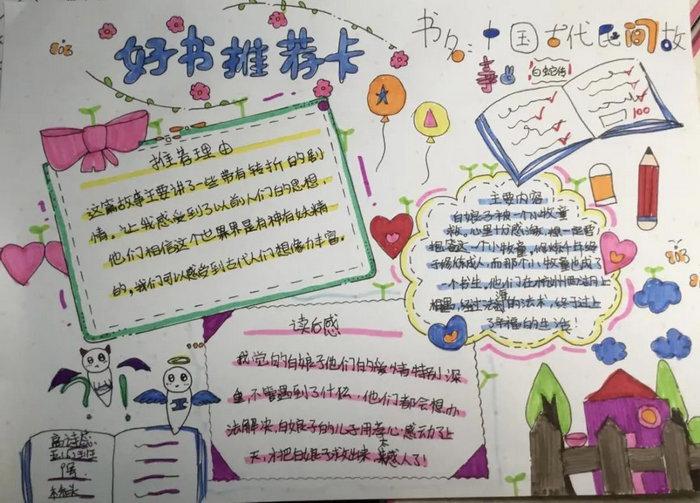 好书推荐卡
书名:中国古代民间故
事
白蛇传
100
推荐理由
这篇故事主要讲了一些带有转折的剧
情。让我感受到了以前人们的思想,
他们相信这个世界是有神有妖精
的,我们可以感受到古代人们想像力丰富。
主要内容
白娘子被一个小牧童
救,心里十分感激,想一定要
报答这一个小牧童,修炼千年终
于修炼成人,而那个小牧童也成了
一个书生,他们在杭州西湖上
相遇,经过法海的法术,终于过上
了幸福的生活!
读后感
我觉的白娘子他们的爱情特别深
厚,不管遇到了什么,他们都会想办
法解决,白娘子的儿子用孝心感动了上
天,才把白娘子救出来,太感人了!